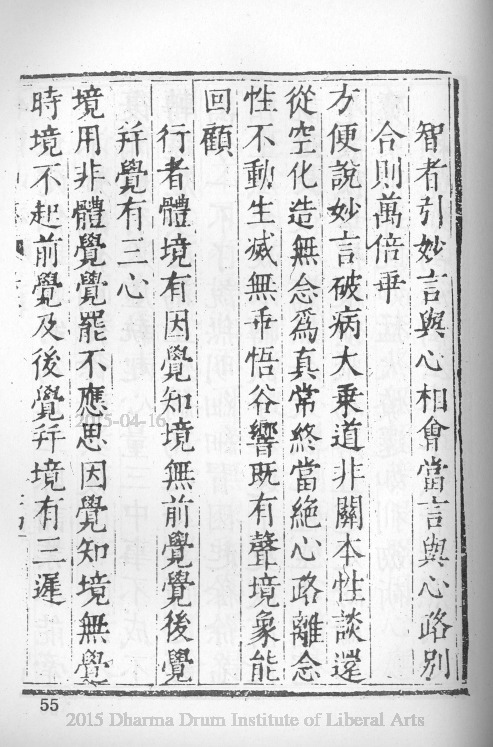 智者引妙言與心相會當言與心路別
合則萬倍乖
方便說妙言破病大乗道非關本性談還
從空化造無念爲真常終當絕心路離念
性不動生滅無乖悟谷響既有聲境象能
回顧
行者體境有因覺知境無前覺覺後覺
幷覺有三心
境用非體覺覺罷不應思因覺知境無覺
時境不起前覺及後覺幷境有三遲
2015-04-16
55
2015 Dharma Drum Institute of Liberal Arts